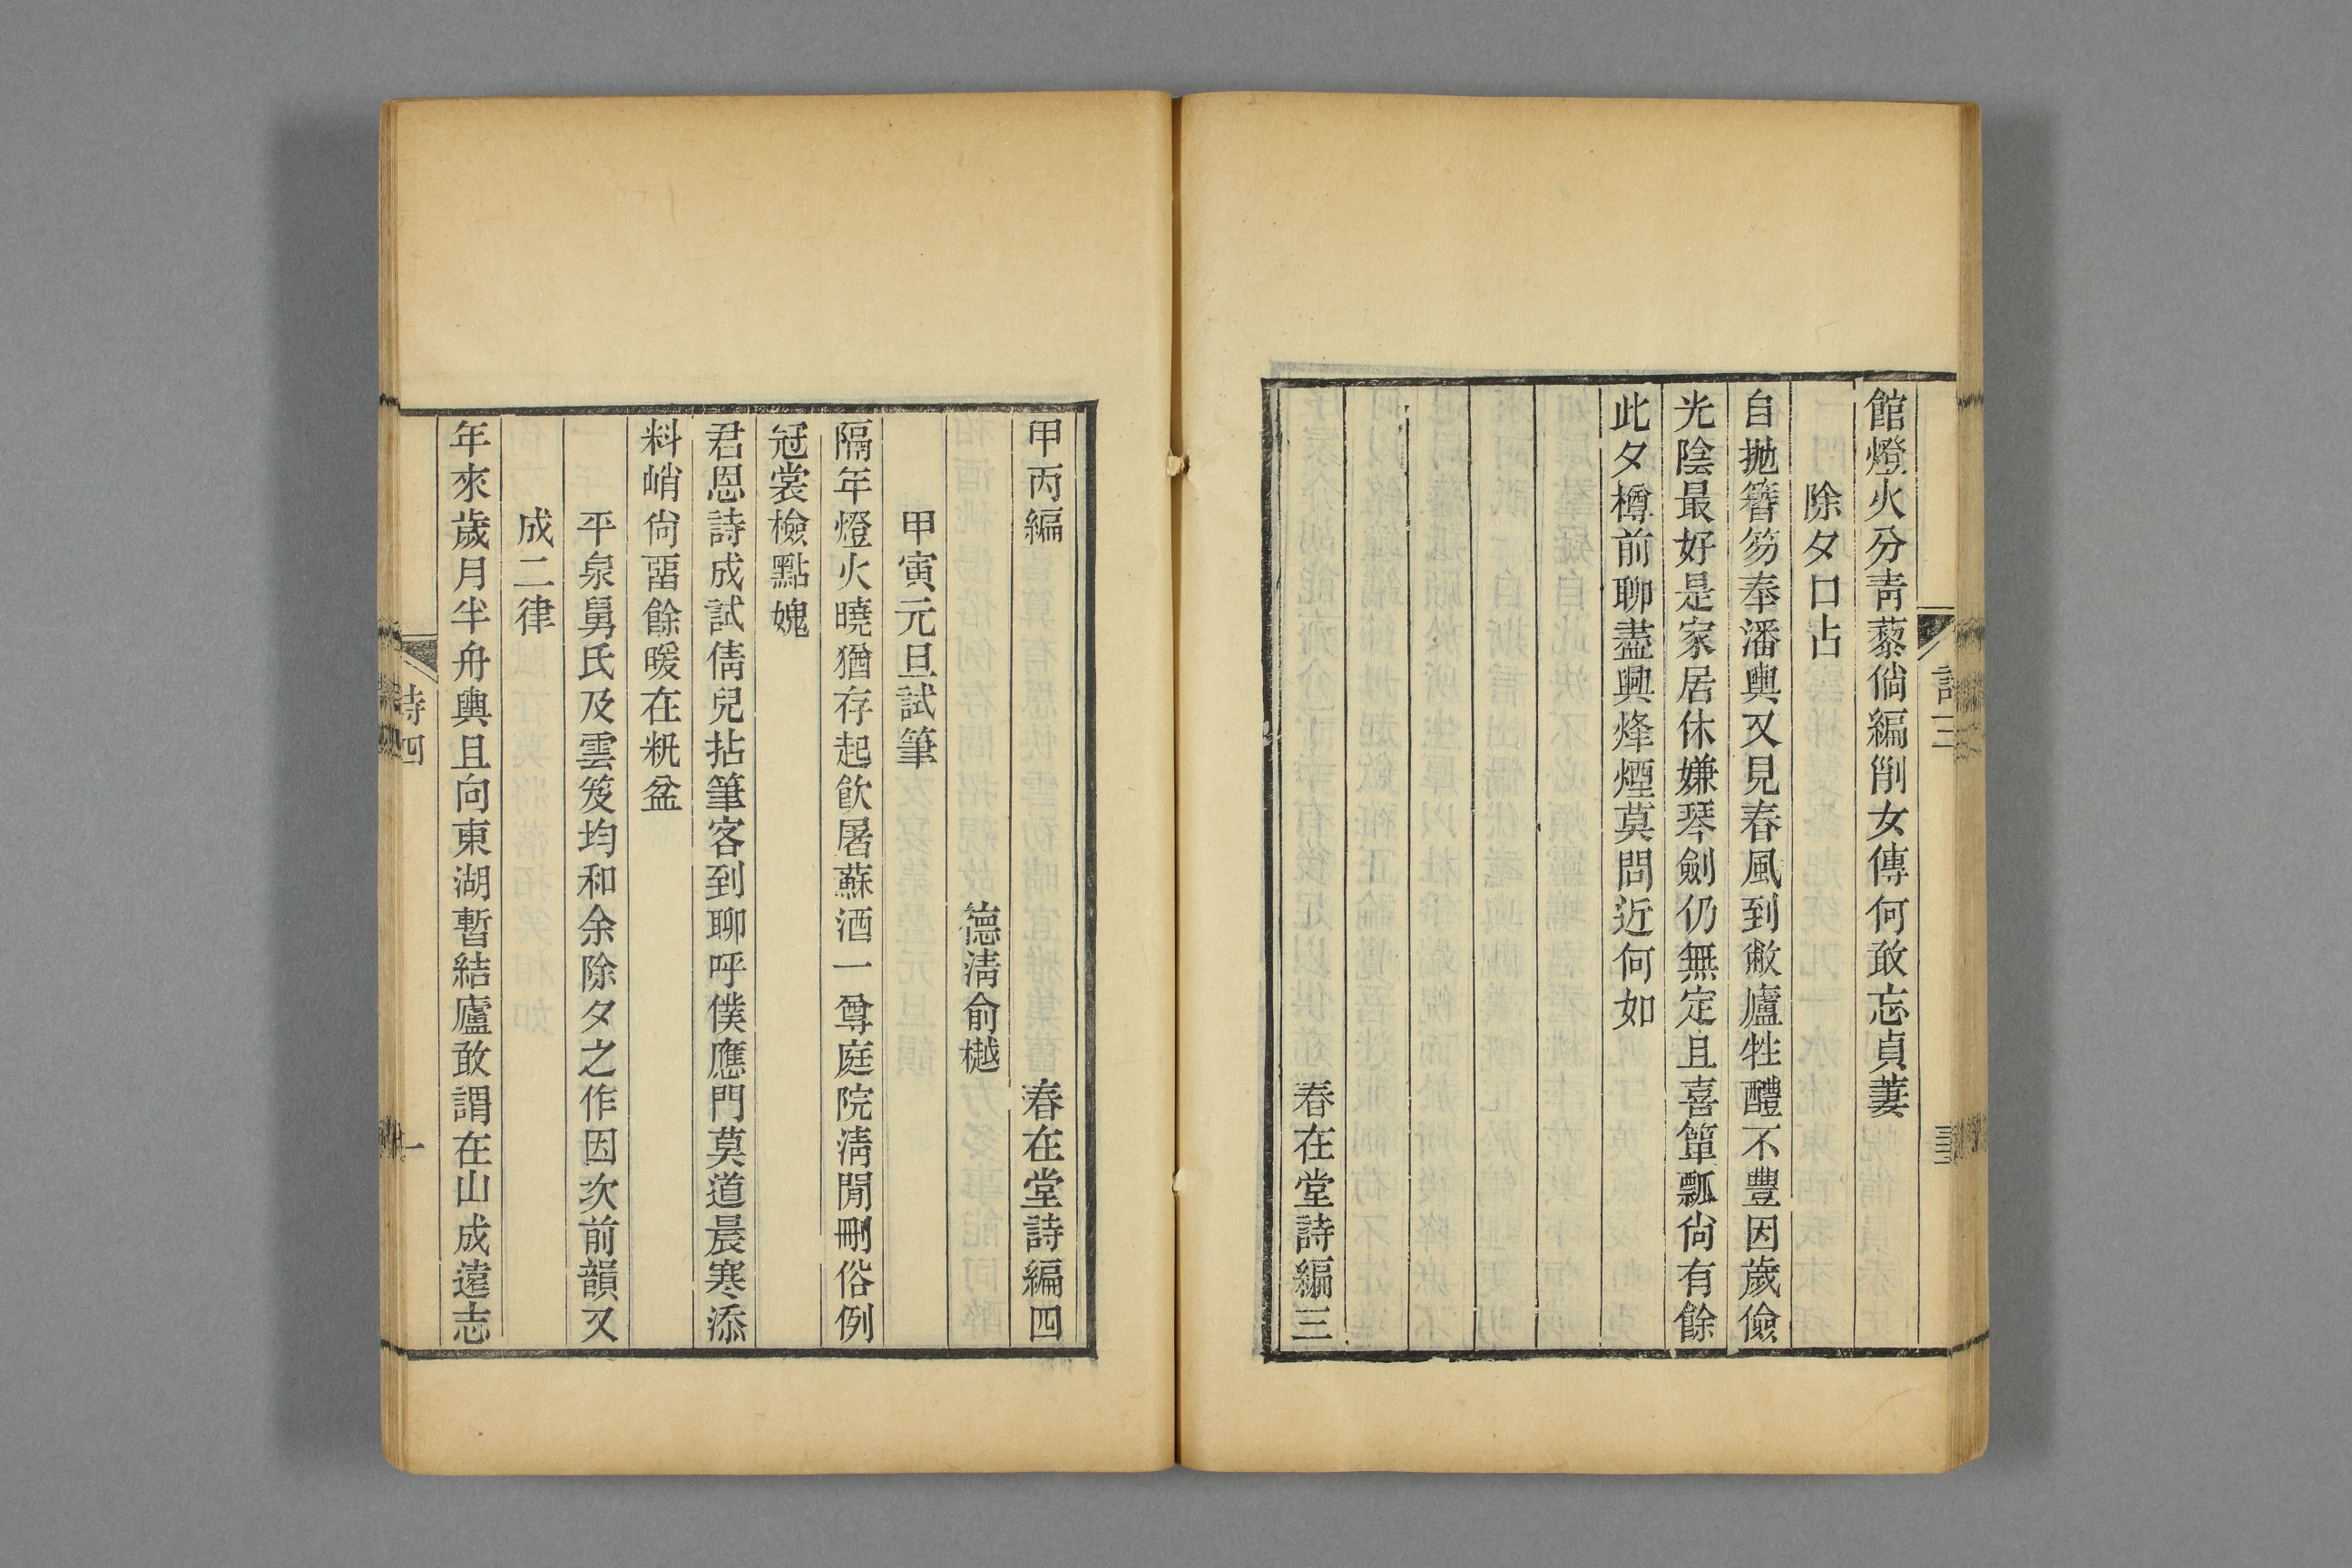 館燈火分靑藜倘編劉女傳何敢忘貞萋
除夕口占
自拋簪笏奉潘輿又見春風到敝廬牲醴不豐因歲儉
光陰最好是家居休嫌琴劍仍無定且喜簞瓢尙有餘
此夕樽前聊盡興烽煙莫問近何如
春在堂詩編三
甲丙編
春在堂詩編四
德淸俞樾
甲寅元旦試筆
隔年燈火曉猶存起飮屠蘇酒一尊庭院淸閒刪俗例
冠裳檢點媿
君恩詩成試倩兒拈筆客到聊呼僕應門莫道晨寒添
料峭尙畱餘暖在粃盆
平泉舅氏及雲笈均和余除夕之作因次前韻又
成二律
年來歲月半舟輿且向東湖暫結廬敢謂在山成遠志
詩四
一